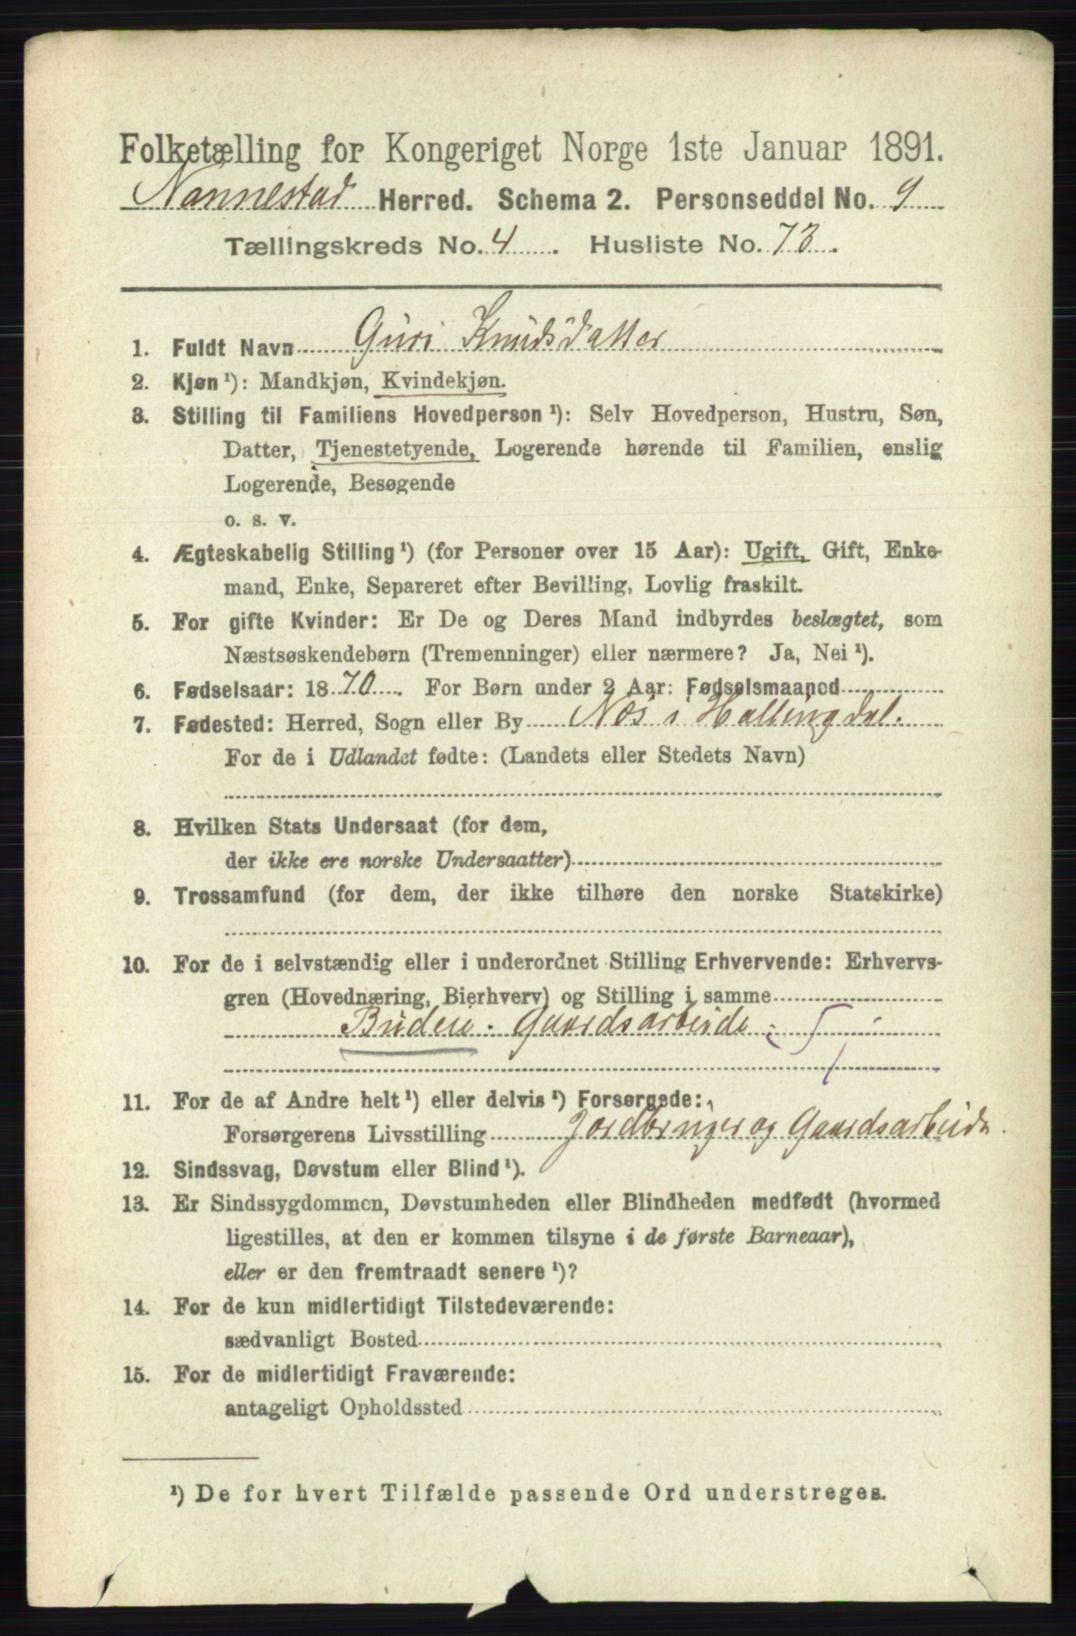 Folketælling for Kongeriget Norge 1ste Januar 1891.
Nannestad Herred. Schema 2. Personseddel No. 9
Tællingskreds No. 4. Husliste No. 73.
1. Fuldt Navn Guri Knudsdatter
2. Kjøn ¹): Mandkjøn, Kvindekjøn.
3. Stilling til Familiens Hovedperson ¹): Selv Hovedperson, Hustru, Søn,
Datter, Tjenestetyende, Logerende hørende til Familien, enslig
Logerende, Besøgende
o. s. v.
4. Ægteskabelig Stilling ¹) (for Personer over 15 Aar): Ugift, Gift, Enke-
mand, Enke, Separeret efter Bevilling, Lovlig fraskilt.
5. For gifte Kvinder: Er De og Deres Mand indbyrdes beslægtet, som
Næstsøskendebørn (Tremenninger) eller nærmere? Ja, Nei ¹).
6. Fødselsaar: 1870. For Børn under 2 Aar: Fødselsmaaned
7. Fødested: Herred, Sogn eller By Næs i Hallingdal.
For de i Udlandet fødte: (Landets eller Stedets Navn)
8. Hvilken Stats Undersaat (for dem,
der ikke ere norske Undersaatter)
9. Trossamfund (for dem, der ikke tilhøre den norske Statskirke)
10. For de i selvstændig eller i underordnet Stilling Erhvervende: Erhvervs-
gren (Hovednæring, Bierhverv) og Stilling i samme
Budeie. Gaardsarbeide
11. For de af Andre helt ¹) eller delvis ¹) Forsørgede:
Forsørgerens Livsstilling Jordbruger og Gaardsarbeide.
12. Sindssvag, Døvstum eller Blind ¹).
13. Er Sindssygdommen, Døvstumheden eller Blindheden medfødt (hvormed
ligestilles, at den er kommen tilsyne i de første Barneaar),
eller er den fremtraadt senere ¹)?
14. For de kun midlertidigt Tilstedeværende:
sædvanligt Bosted
15. For de midlertidigt Fraværende:
antageligt Opholdssted
¹) De for hvert Tilfælde passende Ord understreges.